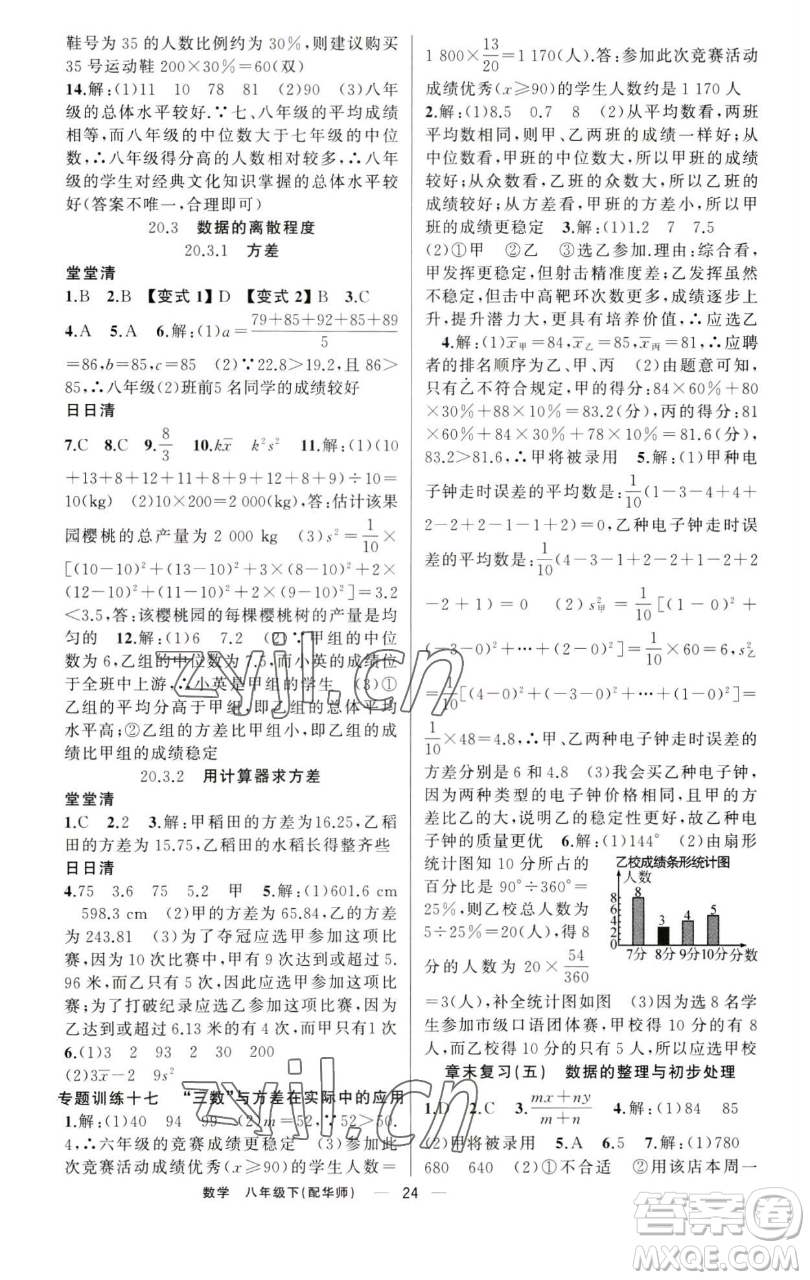 鞋号为 35 的人数比例约为 30%,则建议购买
35 号运动鞋 200×30%=60(双)
14.解:(1)11 10 78 81 (2)90 (3)八年
级的总体水平较好.∵七、八年级的平均成绩
相等,而八年级的中位数大于七年级的中位
数,∴八年级得分高的人数相对较多,∴八年
级的学生对经典文化知识掌握的总体水平较
好(答案不唯一,合理即可)
20.3 数据的离散程度
20.3.1 方差
堂堂清
1.B 2.B 【变式 1】D 【变式 2】B 3.C
4.A 5.A 6.解:(1)a=(79+85+92+85+89)/5
=86,b=85,c=85 (2)∵22.8>19.2,且 86>
85,∴八年级(2)班前5 名同学的成绩较好
日日清
7.C 8.C 9.8/3 10.kx̄ k²s² 11.解:(1)(10
+13+8+12+11+8+9+12+8+9)÷10=
10(kg) (2)10×200=2 000(kg),答:估计该果
园樱桃的总产量为 2 000 kg (3)s²=1/10×
[(10-10)²+(13-10)²+3×(8-10)²+2×
(12-10)²+(11-10)²+2×(9-10)²]=3.2
<3.5,答:该樱桃园的每棵樱桃树的产量是均
匀的 12.解:(1)6 7.2 (2)∵甲组的中位
数为 6,乙组的中位数为 7.5,而小英的成绩位
于全班中上游,∴小英是甲组的学生 (3)①
乙组的平均分高于甲组,即乙组的总体平均
水平高;②乙组的方差比甲组小,即乙组的成
绩比甲组的成绩稳定
20.3.2 用计算器求方差
堂堂清
1.C 2.2 3.解:甲稻田的方差为16.25,乙稻
田的方差为 15.75,乙稻田的水稻长得整齐些
日日清
4.75 3.6 75 5.2 甲 5.解:(1)601.6 cm
598.3 cm (2)甲的方差为 65.84,乙的方差
为 243.81 (3)为了夺冠应选甲参加这项比
赛,因为 10 次比赛中,甲有 9 次达到或超过 5.
96 米,而乙只有 5 次,所以应选甲参加这项比
赛;为了打破纪录应选乙参加这项比赛,因为
乙达到或超过 6.13 米有 4 次,而甲只有1 次
6.(1)3 2 3 2 30 200
(2)3x̄-2 9s²
专题训练十七 “三数”与方差在实际中的应用
1.解:(1)40 94 99 (2)m=52,∵52>50.
4,∴六年级的竞赛成绩更稳定 (3)参加此
次竞赛活动成绩优秀(x≥90)的学生人数=
1 800×13/20=1 170(人).答:参加此次竞赛活动
成绩优秀(x≥90)的学生人数约是 1 170 人
2.解:(1)8.5 0.7 8 (2)从平均数看,两班
平均数相同,则甲、乙两班的成绩一样好;从
中位数看,甲班的中位数大,所以甲班的成绩
较好;从众数看,乙班的众数大,所以乙班的成
绩较好;从方差看,甲班的方差小,所以甲
班的成绩更稳定 3.解:(1)2 7 7.5
(2)①甲 ②乙 ③选乙参加.理由:综合看,
甲发挥更稳定,但射击精准度差;乙发挥虽然
不稳定,但击中高靶环次数更多,成绩逐步上
升,提升潜力大,更具有培养价值,∴应选乙
4.解:(1)x̄甲=84,x̄乙=85,x̄丙=81,∴应聘
者的排名顺序为乙、甲、丙 (2)由题意可知,
只有乙不符合规定,甲的得分:84×60%+80
×30%+88×10%=83.2(分),丙的得分:81
×60%+84×30%+78×10%=81.6(分),
83.2>81.6,∴甲将被录用 5.解:(1)甲种电
子钟走时误差的平均数是:1/10(1-3-4+4+
2-2+2-1-1+2)=0,乙种电子钟走时误
差的平均数是:1/10(4-3-1+2-2+1-2+2
-2+1)=0 (2)s²甲=1/10[(1-0)²+
(-3-0)²+…+(2-0)²]=1/10×60=6,s²乙
=1/10[(4-0)²+(-3-0)²+…+(1-0)²]=
1/10×48=4.8,∴甲、乙两种电子钟走时误差的
方差分别是 6 和 4.8 (3)我会买乙种电子钟,
因为两种类型的电子钟价格相同,且甲的方
差比乙的大,说明乙的稳定性更好,故乙种电
子钟的质量更优 6.解:(1)144° (2)由扇形
统计图知 10 分所占的
百分比是 90°÷360°=
25%,则乙校总人数为
5÷25%=20(人),得 8
分的人数为 20×54/360
=3(人),补全统计图如图 (3)因为选 8 名学
生参加市级口语团体赛,甲校得 10 分的有 8
人,而乙校得 10 分的只有 5 人,所以应选甲校
乙校成绩条形统计图
人数
8
6
4
2
0
8
3
4
5
7分 8分 9分 10分 分数
章末复习(五) 数据的整理与初步处理
1.D 2.C 3.(mx+ny)/(m+n) 4.解:(1)84 85
(2)乙将被录用 5.B 6.5 7.解:(1)780
680 640 (2)①不合适 ②用该店本周一
数学 八年级下(配华师) — 24 —
zyjl.cn
zyjl.cn
答案圈
MXQE.COM